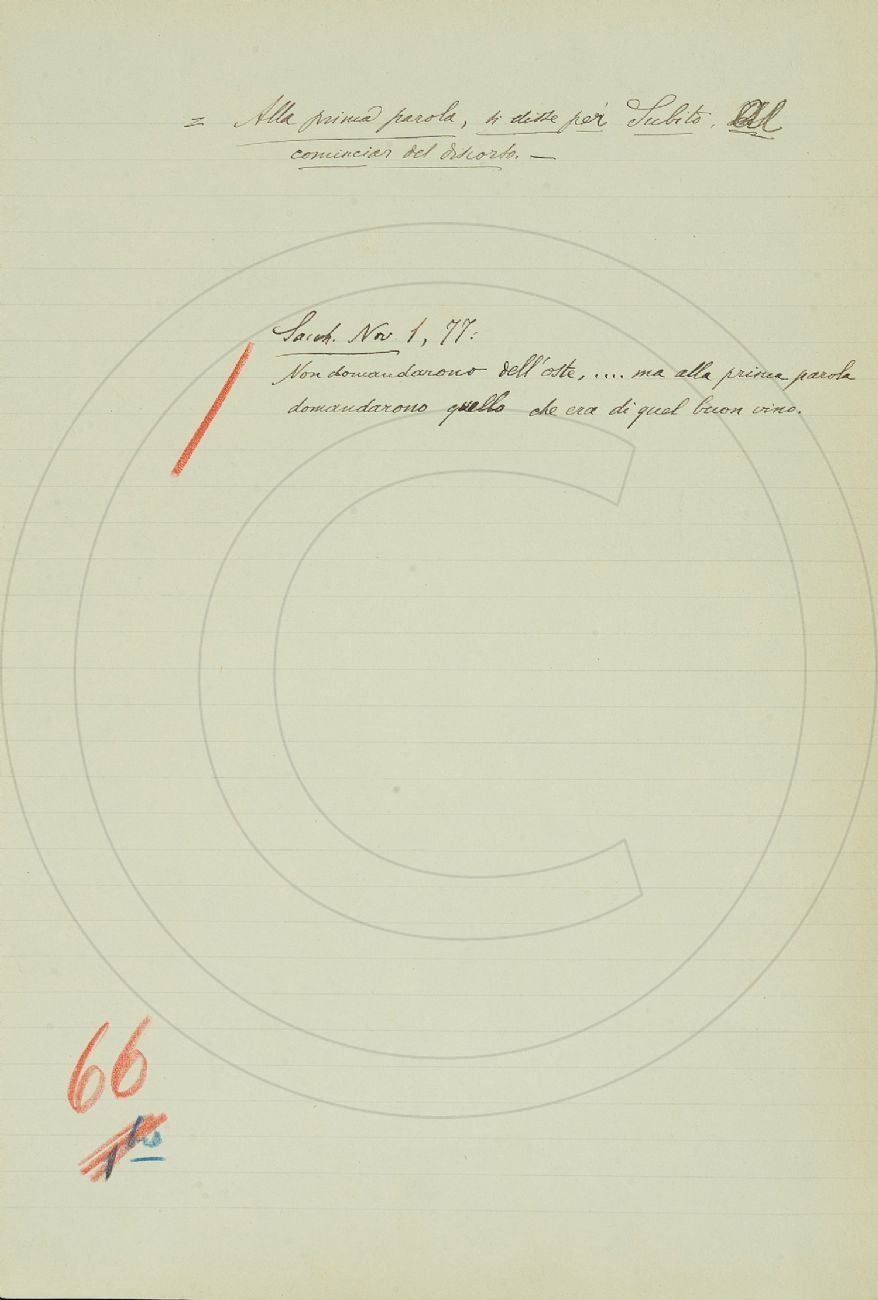 = Alla prima parola, si disse per Subito. Al
cominciar del discorso. —
Sacch. Nov. 1, 77:
Non domandarono dell'oste, .... ma alla prima parola
domandarono quello che era di quel buon vino.
66